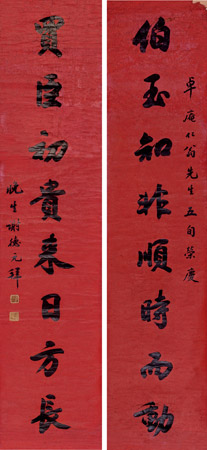 卓庵仁翁先生五旬榮慶
伯玉知非順時而動
買臣初貴來日方長
晚生謝德元拜